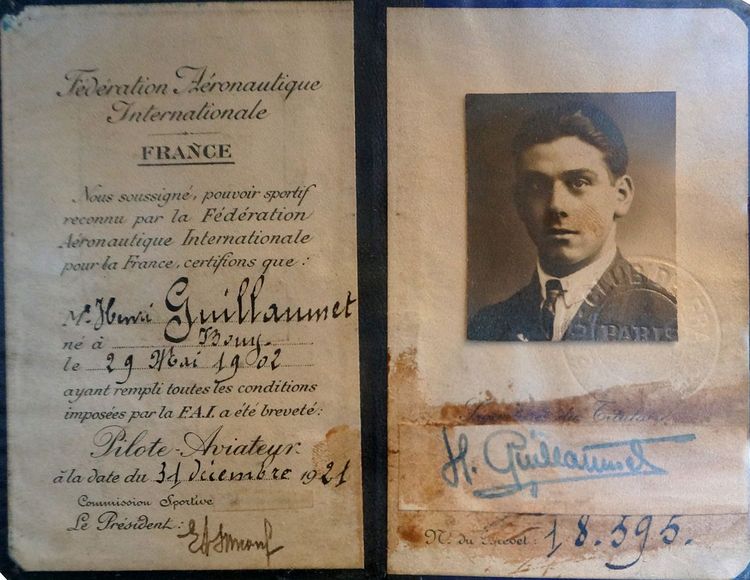 Fédération Aéronautique
Internationale
FRANCE
Nous soussigné, pouvoir sportif
reconnu par la Fédération
Aéronautique Internationale
pour la France, certifions que :
Mr Henri Guillaumet
né à Bouy
le 29 Mai 1902
ayant rempli toutes les conditions
imposées par la F.A.I. a été breveté :
Pilote-Aviateur
à la date du 31 décembre 1921
Commission Sportive
Le Président :
PARIS
du Titulaire
H. Guillaumet
No. du Brevet : 18.595.